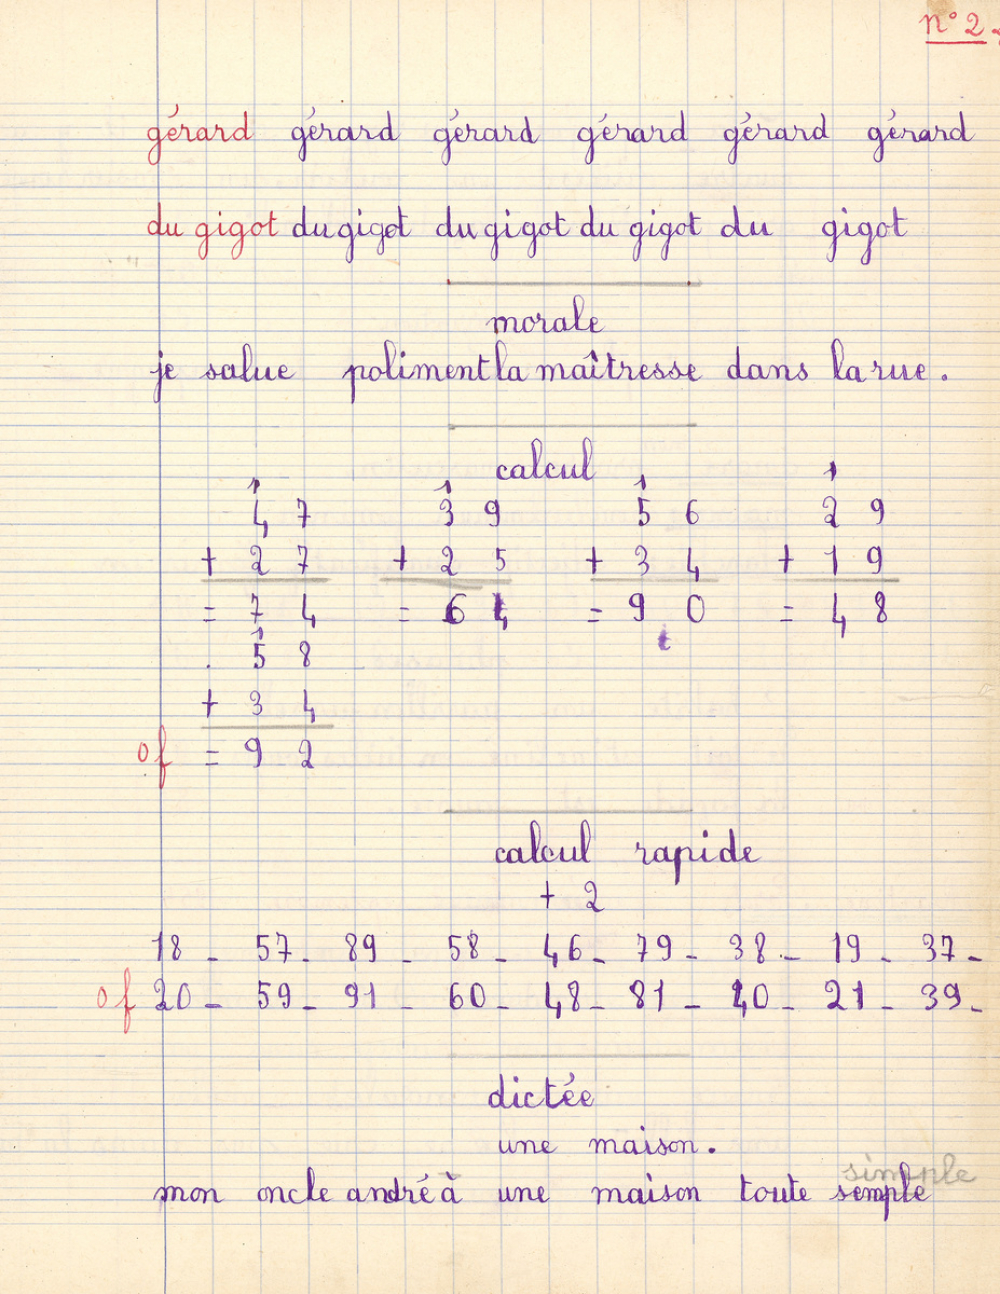 n° 2.
gérard gérard gérard gérard gérard gérard
du gigot du gigot du gigot du gigot du gigot
morale
je salue poliment la maîtresse dans la rue.
calcul
1 1 1 1
47 39 56 29
+ 27 + 25 + 34 + 19
= 74 = 64 = 90 = 48
1
. 58
+ 34
of = 92
calcul rapide
+ 2
18 - 57 - 89 - 58 - 46 - 79 - 38 - 19 - 37 -
of 20 - 59 - 91 - 60 - 48 - 81 - 40 - 21 - 39 -
dictée
une maison.
simple
mon oncle andré à une maison toute semple